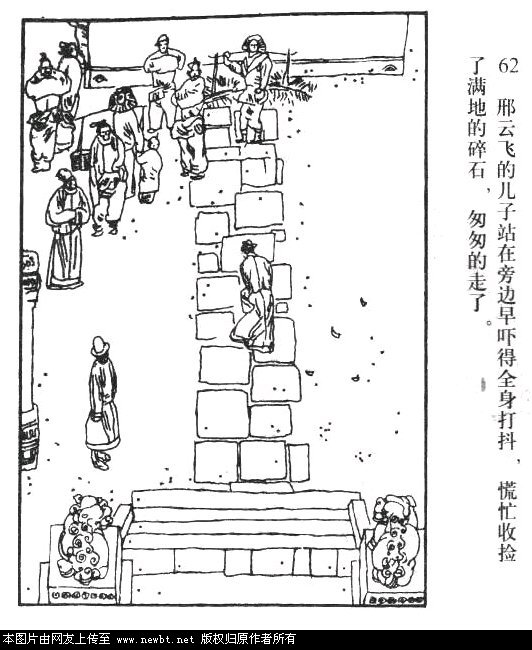 62 邢云飞的儿子站在旁边早吓得全身打抖，慌忙收捡
了满地的碎石，匆匆的走了。
本图片由网友上传至 www.newbt.net 版权归原作者所有